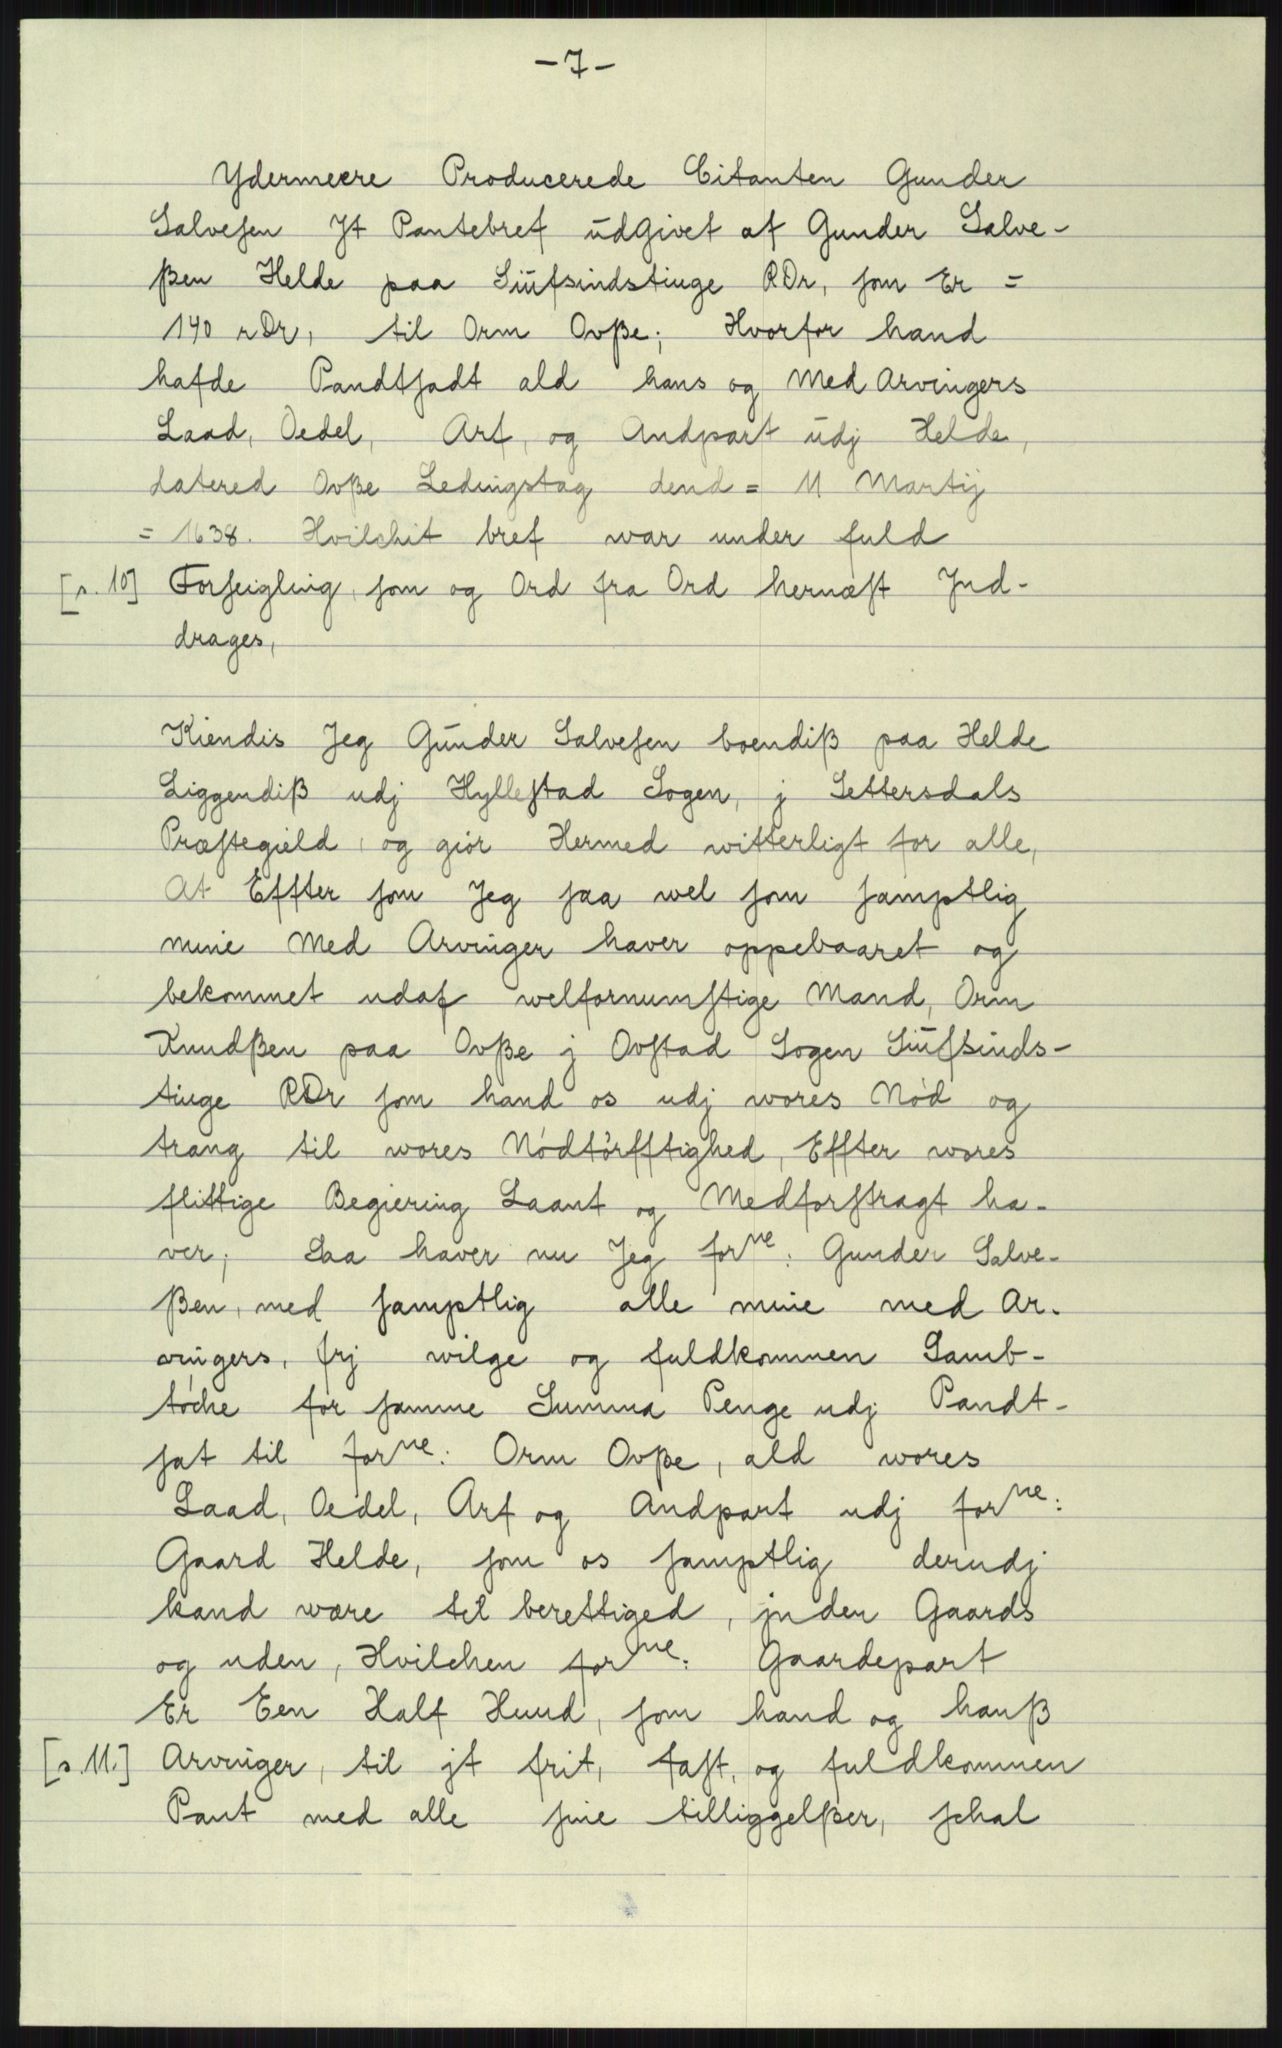 -7-
Ydermeere Producerede Citanten Gunder
Salvesen Jt Pantebref ūdGivet af Gunder Salve-
ßen Helde paa Siūfsindstiuge RDr, som Er =
140 rDr, til Orm Ovße; Hvorfor hand
hafde Pandtsadt ald hans og Med Arvingers
Laad, Oedel, Arf, og Andpart ūdj Helde,
datered Ovße Ledingstag dend = 11 Martij
= 1638. Hvilchit bref war under fuld
[s. 10] Forseigling, som og Ord fra Ord hernæst Jnd-
drages,
Kiendis Jeg Gūnder Salvesen boendiß paa Helde
Liggendiß udj Hyllestad Sogen, j Settersdals
Præstegield, og giør Hermed witterligt for alle,
At Effter som Jeg saa wel som samptlig
mine Med Arvinger haver oppebaaret og
bekommet udaf welfornumstige Mand, Orm
Knudßen paa Ovße j Ovstad Sogen Siūfsinds-
tiuge RDr som hand os udj wores Nød og
trang til wores Nødtørfftighed, Effter wores
flittige Begiering Laant og Medforstragt ha-
ver; Saa haver nu Jeg forne: Gunder Salve-
ßen, med samptlig alle mine med Ar-
vingers, frj wilge og fuldkommen Samb-
tøche for samme Summa Penge udj Pandt-
sat til forne: Orm Ovße, ald wores
Laad, Oedel, Arf og Andpart udj forne:
Gaard Helde, som os samptlig derudj
kand wære til berettiged, jnden Gaards
og uden, Hvilchen forne: Gaardepart
Er Een Half Huud, som hand og hanß
[s. 11.] Arvinger, til jt frit, fast, og fuldkommen
Pant med alle sine tilliggelßer, schal